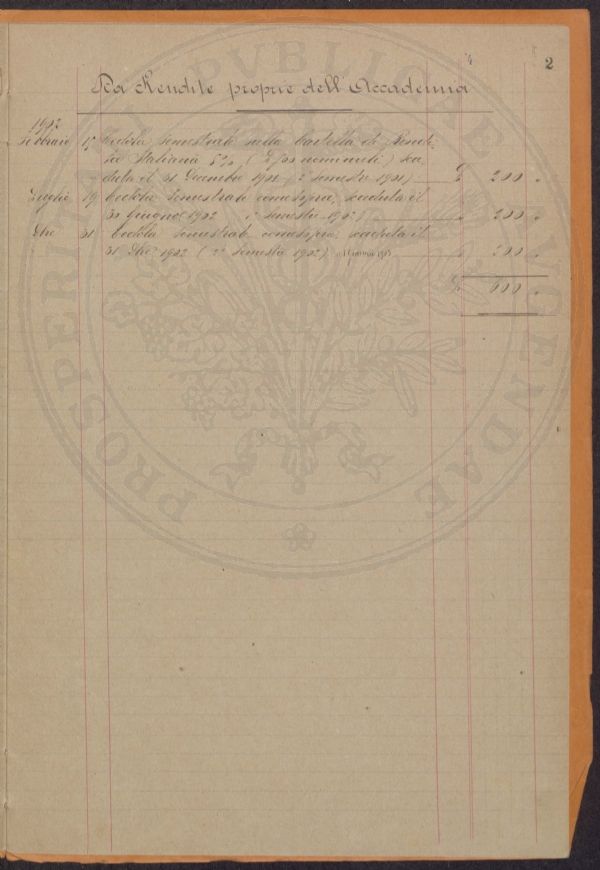 2
Da Rendite proprie dell'Accademia
1902
Febbraio 15 Cedola semestrale sulla Cartella di Rendi-
ta Italiana 5% ( nominale) sca-
duta il 31 Decembre 1901 (2° semestre 1901) £ 200 "
Luglio 19 Cedola semestrale come sopra, scaduta il
30 Giugno 1902 1° semestre 1902) " 200 "
Xbre 31 Cedola semestrale come sopra, scaduta il
31 Xbre 1902 (2° semestre 1902) 1 Gennaio 1903 " 200 "
£ 600 "
PROSPERITATI PVBLICAE AVGENDAE